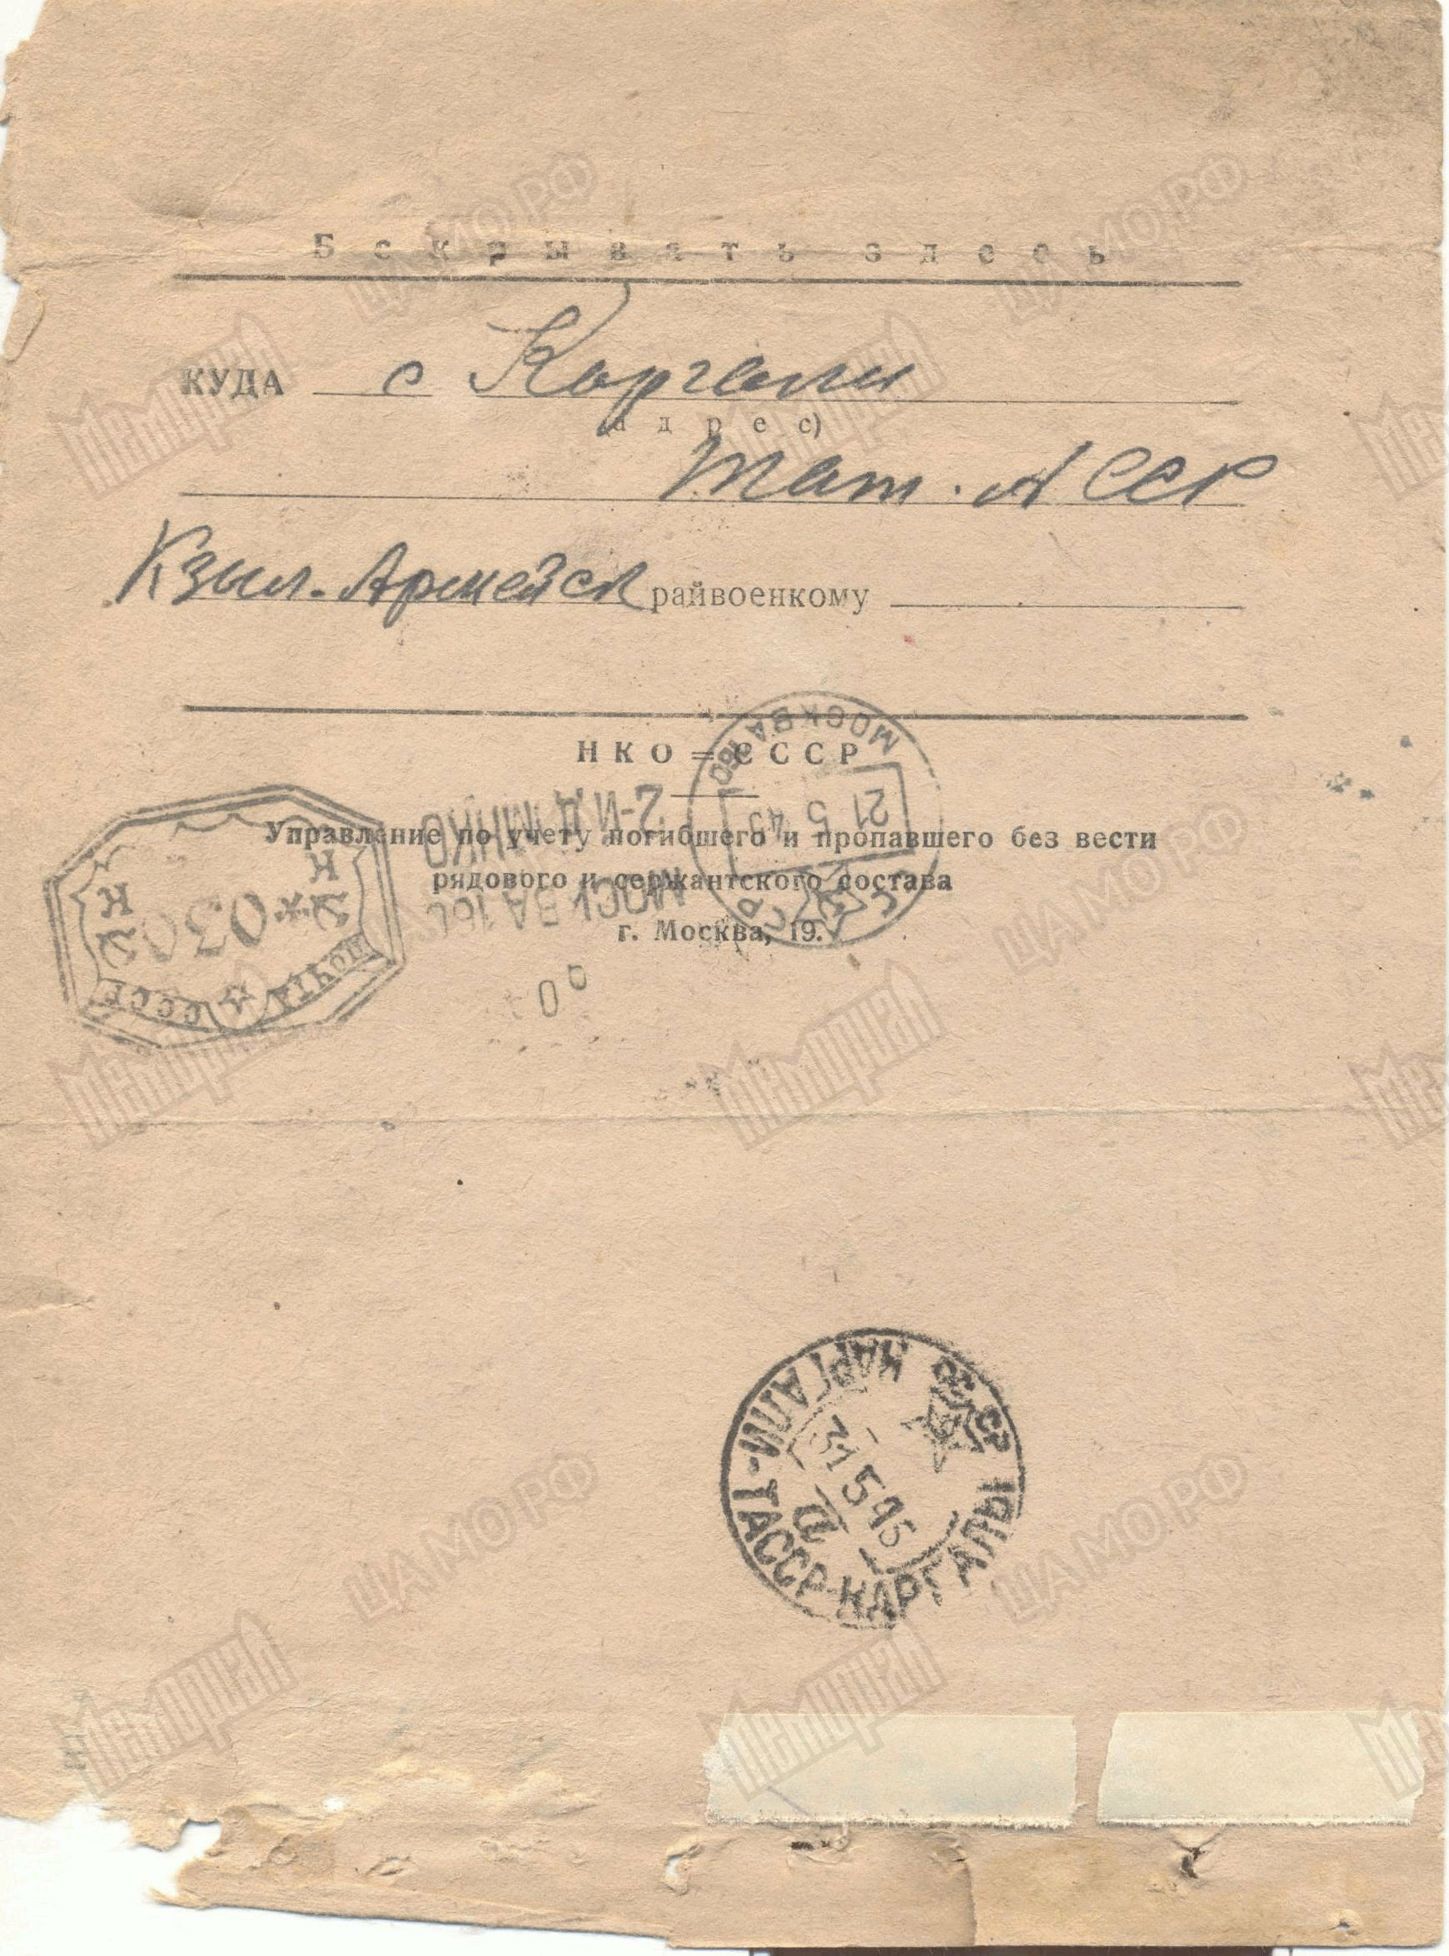 Вскрывать здесь
КУДА с Каргали
(адрес)
Тат. АССР
Кзыл. Армейск райвоенкому
НКО=СССР
Управление по учету погибшего и пропавшего без вести
рядового и сержантского состава
г. Москва, 19.
МОСКВА 160
21 5 45
СССР
МОСКВА 160
2-И Д
К К
030
ПОЧТА СССР
КАРГАЛИ-ТАССР-КАРГАЛЫ
31 5 45
а
Мемориал
ЦАМО.РФ